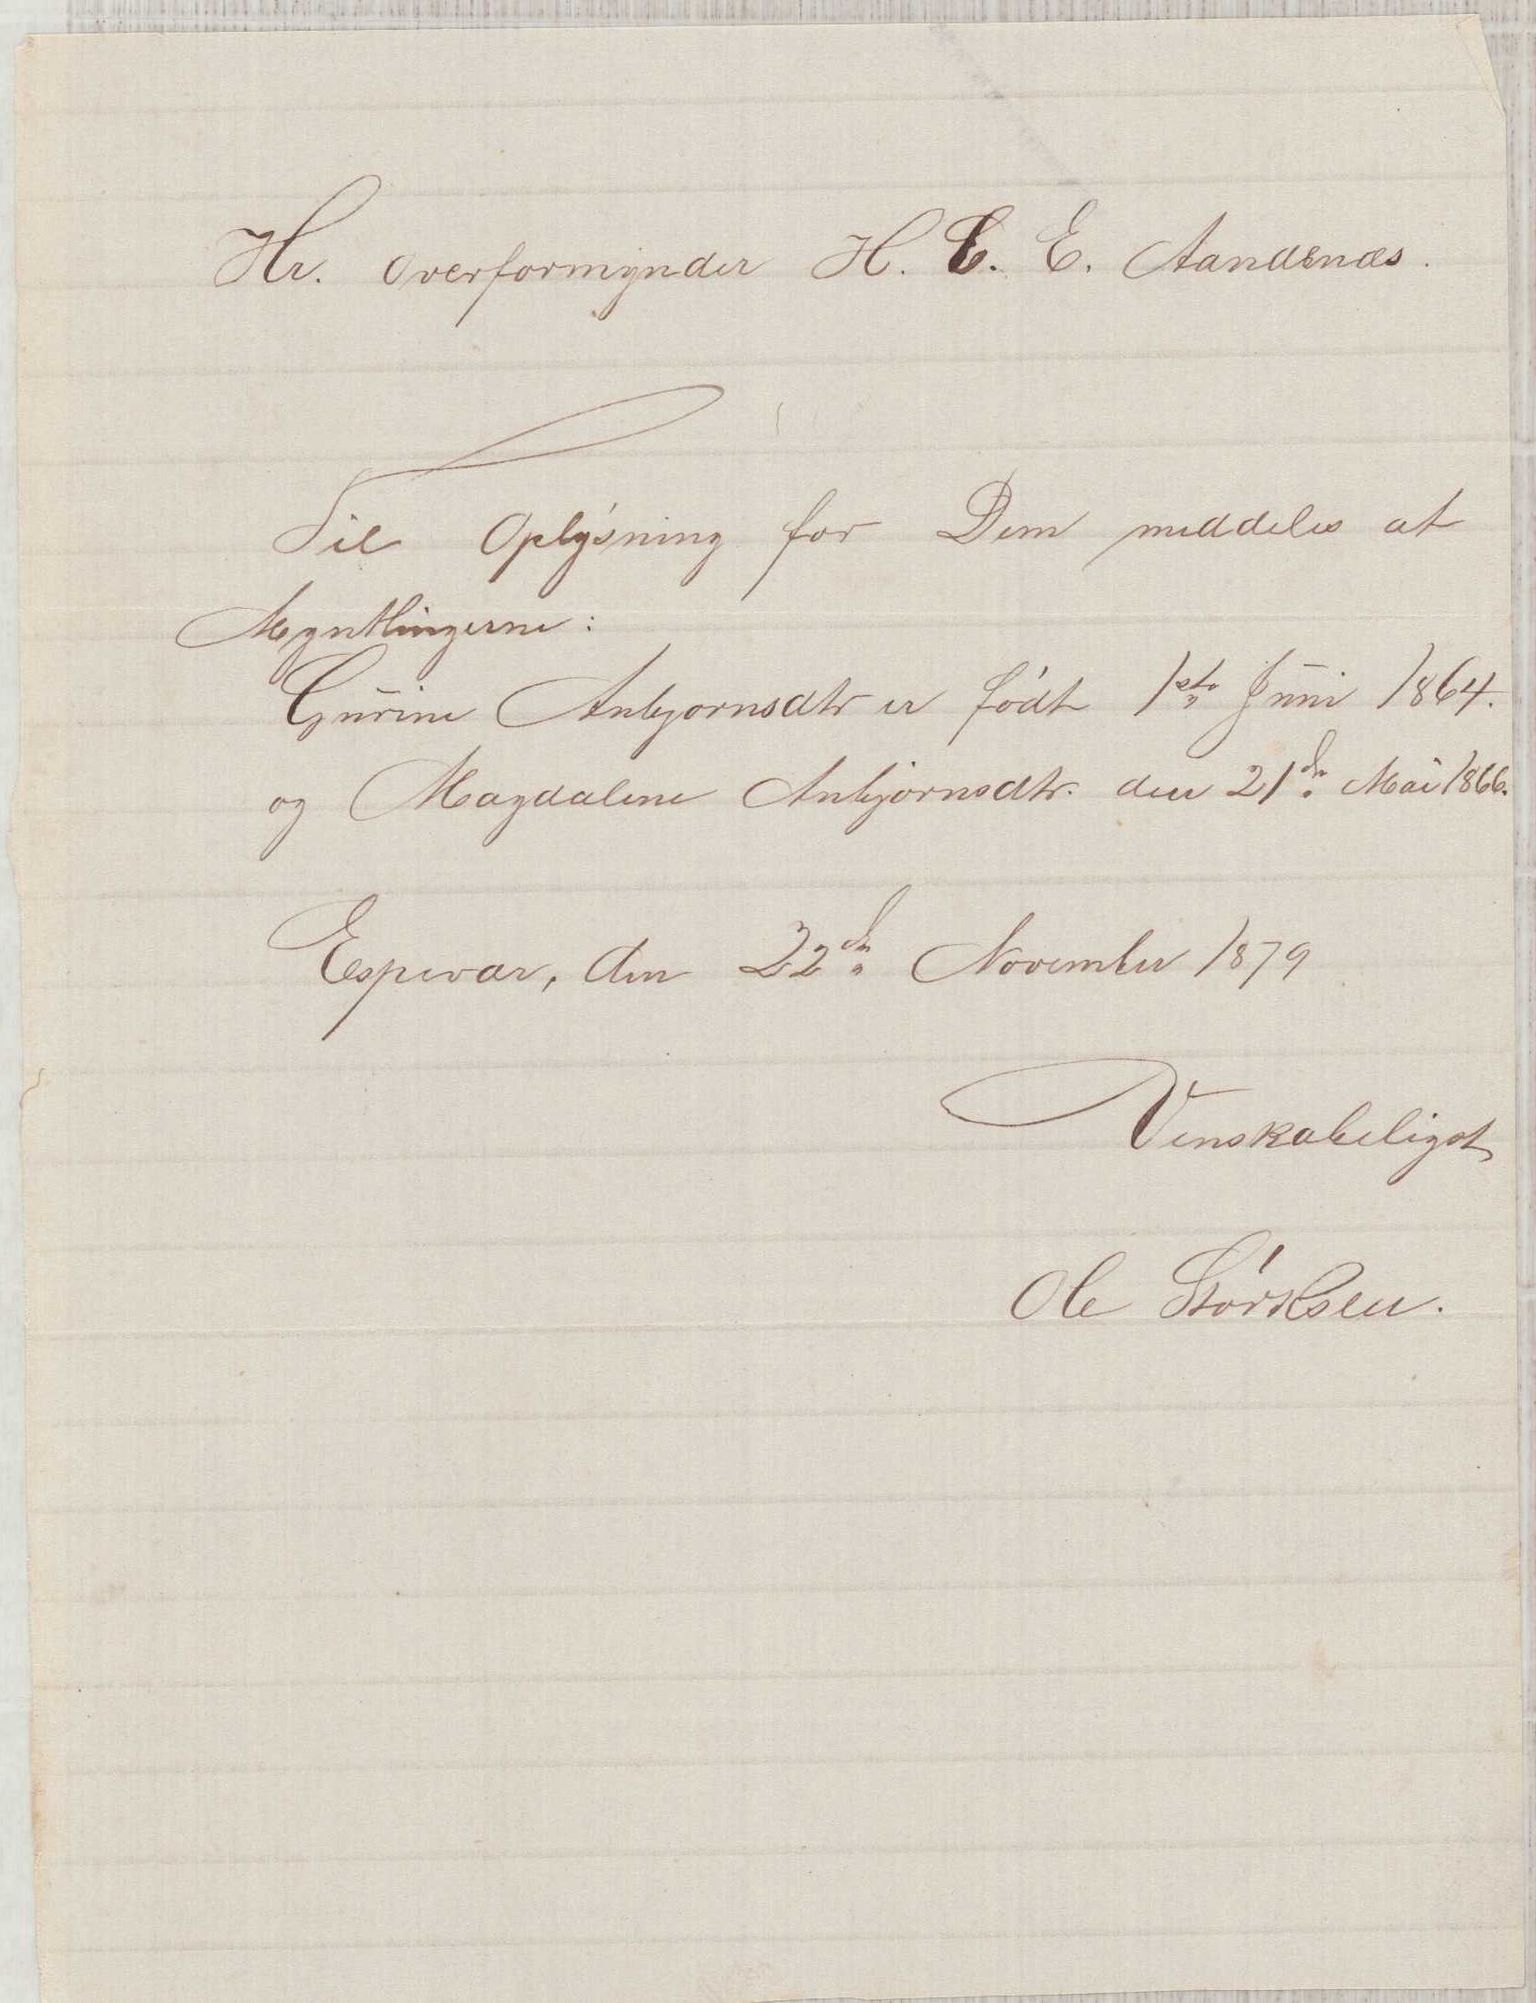 Hr. Overformynder H. E. E. Aandenæs.
Til Oplysning for Dem meddeles at
Myntlingerne:
Gurine Anbjørnsdtr er født 1ste Juni 1864.
og Magdalene Anbjørnsdtr. den 21de Mai 1866.
Espevær, den 22de November 1879
Venskabeligst
Ole Størksen.